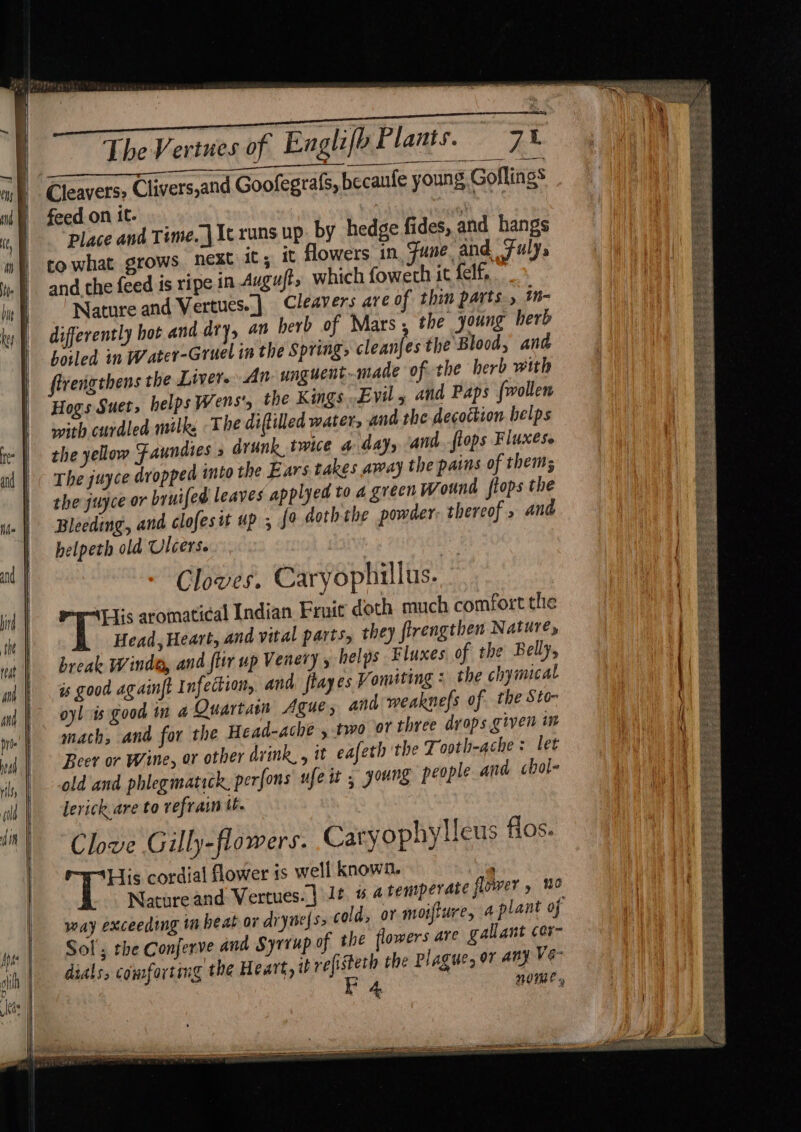 The Vertues of Engliſh Plants. 71
Cleavers, Clivers,and Gooſegraſs, becauſe young Goſlings
feed on it.
Place and Time.] It runs up by hedge ſides, and hangs
to what grows next it; it flowers in June and July,
and the ſeed is ripe in Auguſt, which ſoweth it ſelf.
Nature and Vertues.] Cleavers are of thin parts, in-
differently hot and dry, an herb of Mars; the young herb
boiled in Water-Gruel in the Spring, cleanſes the Blood, and
ſtrengthens the Liver. An unguent made of the herb with
Hogs Suet, helps Wens, the Kings Evil, and Paps ſwollen
with curdled milk. The diſtilled water, and the decoction helps
the yellow Jaundies; drunk twice a day, and ſtops Fluxes.
The juyce dropped into the Ears takes away the pains of them;
the juyce or bruiſed leaves applyed to a green Wound ſtops the
Bleeding, and cloſes it up; ſo doth the powder thereof, and
helpeth old Ulcers.
Cloves. Caryophillus.
THis aromatical Indian Fruit doth much comfort the
Head, Heart, and vital parts, they ſtrengthen Nature,
break Winde, and ſtir up Venery, helps Fluxes of the Belly,
is good againſt Infection, and ſtayes Vomiting: the chymical
oyl is good in a Quartain Ague, and weakneſs of the Sto-
mach, and for the Head-ache, two or three drops given in
Beer or Wine, or other drink, it eaſeth the Tooth-ache: let
old and phlegmatick perſons uſe it; young people and chol-
lerick are to refrain it.
Clove Gilly-flowers. Caryophylleus flos.
THis cordial flower is well known.
Nature and Vertues.] It is a temperate flower, no
way exceeding in heat or dryneſs, cold, or moiſture, a plant of
Sol; the Conſerve and Syrrup of the flowers are gallant cor-
dials, comforting the Heart, it reſisteth the Plague, or any Ve-
F 4
nome,